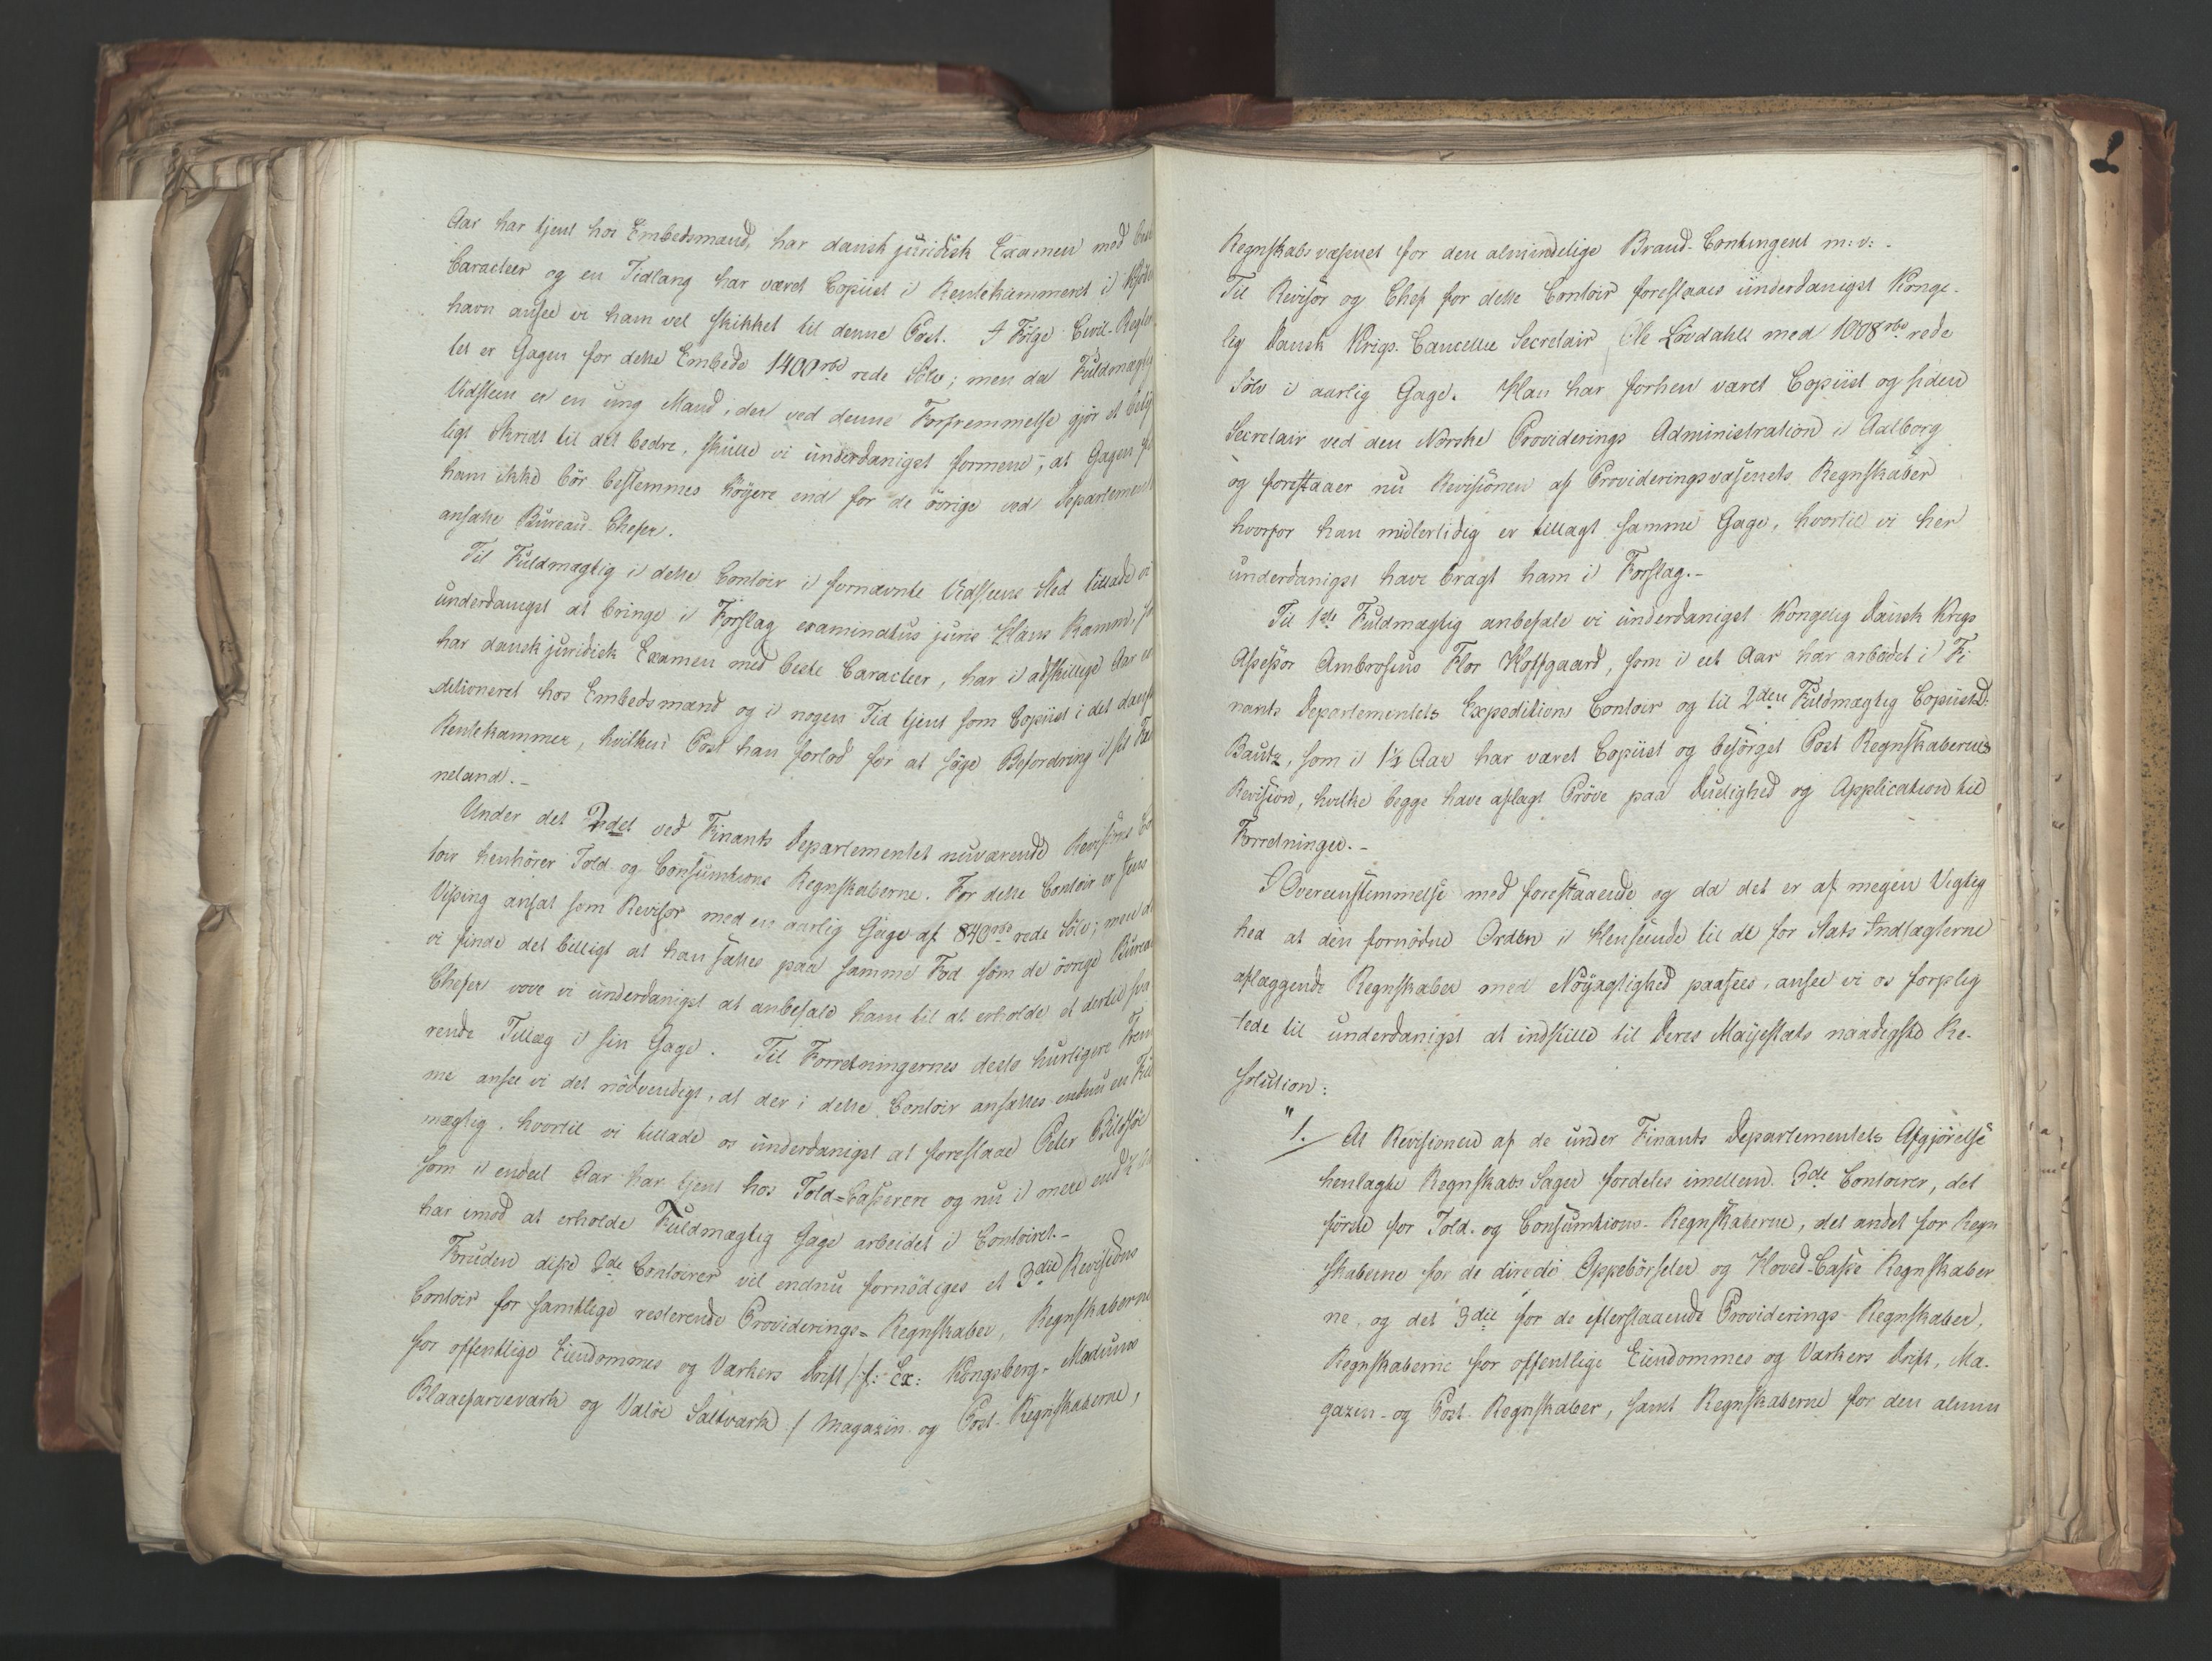 Aar har tjent hos Embedsmænd, har dansk juridisk Examen med
Caracteer og en Tidlang har været Copiist i Rentekammeret i
havn ansee vi ham vel skikket til denne Post. I Følge Civil-
tet er Gagen for dette Embede 1400 rbd rede Sølv; men da
Vidsteen er en ung Mand, der ved denne Forfremmelse gjør et
ligt Skridt til det bedre, skulle vi underdanigst formene, at Gagen
ham ikke bör bestemmes höyere end for de övrige ved Departementet
ansatte Bureau-Chefer.
Til Fuldmægtig i dette Contoir i fornævnte Vidsteens Sted tillade vi
underdanigst at bringe i Forslag examinatus juris Hans Ramm,
har dansk juridisk Examen med beste Caracteer, har i adskillige Aar
ditioneret hos Embedsmænd og i nogen Tid tjent som Copiist i det
Rentekammer, hvilken Post han forlod for at søge Befordring i sit
neland.-
Under det 2det ved Finants Departementet nuværende Revisions
toir henhörer Told og Consumtions Regnskaberne. For dette Contoir er Jens
Vissing ansat som Revisor med en aarlig Gage af 840 rbd rede Sölv; men
vi finde det billigt at han sættes paa samme Fod som de övrige Bureau
Chefer vove vi underdanigst at anbefale ham til at erholde et dertil
rende Tillæg i sin Gage. Til Forretningernes desto hurtigere
me ansee vi det nödvendigt, at der i dette Contoir ansættes endnu en
mægtig, hvortil vi tillade os underdanigst at foreslaae Peter
som i endeel Aar har tjent hos Told-Casserere og nu i mere end
har imod at erholde Fuldmægtig Gage arbeidet i Contoiret.-
Foruden disse 2de Contoirer vil endnu fornödiges et 3die Revisions
Contoir for samtlige resterende Providerings-Regnskaber, Regnskaberne
for offentlige Eiendommes og Værkers Drift /: f: Ex: Kongsberg- Modums
Blaaefarveværk og Valöe Saltværk :/ Magazin- og Post-Regnskaberne,
Regnskabsvæsnet for den almindelige Brand-Contingent m: v: .
Til Revisor og Chef for dette Contoir foreslaaes underdanigst Konge-
lig Dansk Krigs-Cancellie Secretair Ole Lövdahls med 1008 rbd rede
Sölv i aarlig Gage. Han har forhen været Copiist og siden
Secretair ved den Norske Providerings Administration i Aalborg
og forestaaer nu Revisionen af Provideringsvæsenets Regnskaber
hvorfor han midlertidig er tillagt samme Gage, hvortil vi her
underdanigst have bragt ham i Forslag.-
Til 1ste Fuldmægtig anbefale vi underdanigst Kongelig Dansk Krigs
Assessor Ambrosius Flor Hoffgaard, som i eet Aar har arbeidet i Fi
nants Departementets Expeditions Contoir og til 2den Fuldmægtig Copiist D:
Bautz, som i 1½ Aar har været Copiist og besörget Post Regnskabernes
Revision, hvilke begge have aflagt Pröve paa Duelighed og Application til
Forretninger.-
I Overeensstemmelse med forestaaende og da det er af megen Vigtig
hed at den fornödne Orden i Henseende til de for Stats Indtægterne
aflæggende Regnskaber med Nöyagtighed paasees, ansee vi os forplig
tede til underdanigst at indstille til Deres Majestæts naadigste Re-
solution:
"1. At Revisionen af de under Finants Departementets Afgjörelse
henlagte Regnskabs Sager fordeles imellem 3de Contoirer, det
förste for Told- og Consumtions-Regnskaberne, det andet for Regn
skaberne for de directe Oppebörseler og Hoved-Casse Regnskaber
ne, og det 3die for de efterstaaende Providerings-Regnskaber,
Regnskaberne for offentlige Eiendommes og Værkers Drift, Ma-
gazin- og Post-Regnskaber, samt Regnskaberne for den almin